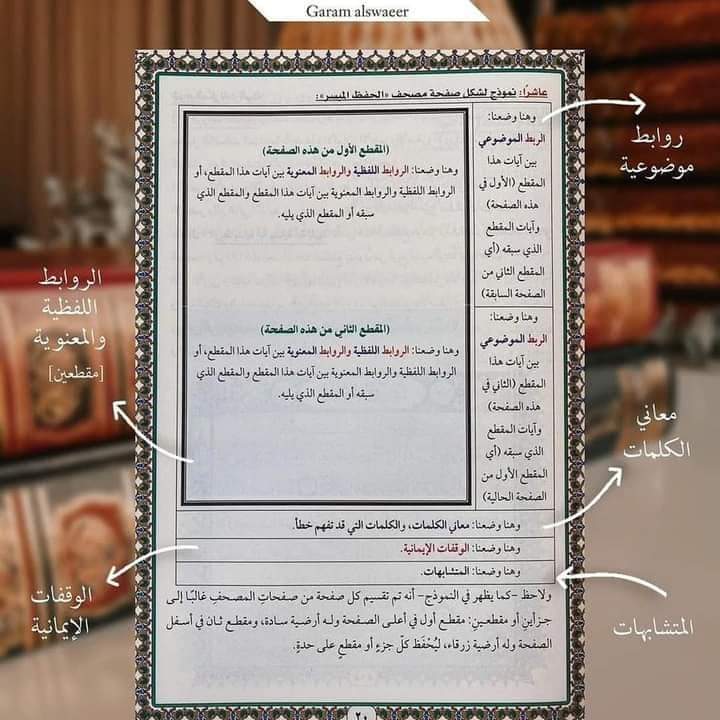 Garam alswaeer
عاشرًا: نموذج لشكل صفحة مصحف «الحفظ الميسر»:
وهنا وضعنا:
الربط الموضوعي
بين آيات هذا
المقطع (الأول في
هذه الصفحة)
وآيات المقطع
الذي سبقه (أي
المقطع الثاني من
الصفحة السابقة)
(المقطع الأول من هذه الصفحة)
وهنا وضعنا: الروابط اللفظية والروابط المعنوية بين آيات هذا المقطع، أو
الروابط اللفظية والروابط المعنوية بين آيات هذا المقطع والمقطع الذي
سبقه أو المقطع الذي يليه.
وهنا وضعنا:
الربط الموضوعي
بين آيات هذا
المقطع (الثاني في
هذه الصفحة)
وآيات المقطع
الذي سبقه (أي
المقطع الأول من
الصفحة الحالية)
(المقطع الثاني من هذه الصفحة)
وهنا وضعنا: الروابط اللفظية والروابط المعنوية بين آيات هذا المقطع، أو
الروابط اللفظية والروابط المعنوية بين آيات هذا المقطع والمقطع الذي
سبقه أو المقطع الذي يليه.
وهنا وضعنا: معاني الكلمات، والكلمات التي قد تفهم خطأ.
وهنا وضعنا: الوقفات الإيمانية.
وهنا وضعنا: المتشابهات.
ولاحظ -كما يظهر في النموذج- أنه تم تقسيم كل صفحة من صفحات المصحف غالبًا إلى
جزأين أو مقطعين: مقطع أول في أعلى الصفحة وله أرضية سادة، ومقطع ثان في أسفل
الصفحة وله أرضية زرقاء، ليُحْفَظ كلّ جزءٍ أو مقطعٍ على حدةٍ.
٢٠
روابط
موضوعية
الروابط
اللفظية
والمعنوية
[مقطعين]
معاني
الكلمات
الوقفات
الإيمانية
المتشابهات